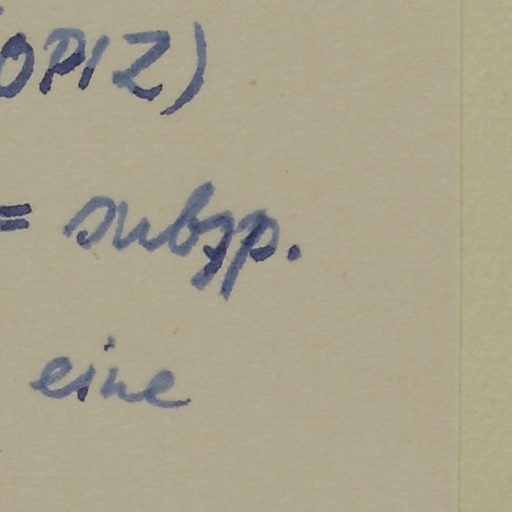 OPIZ)
= subsp.
eine